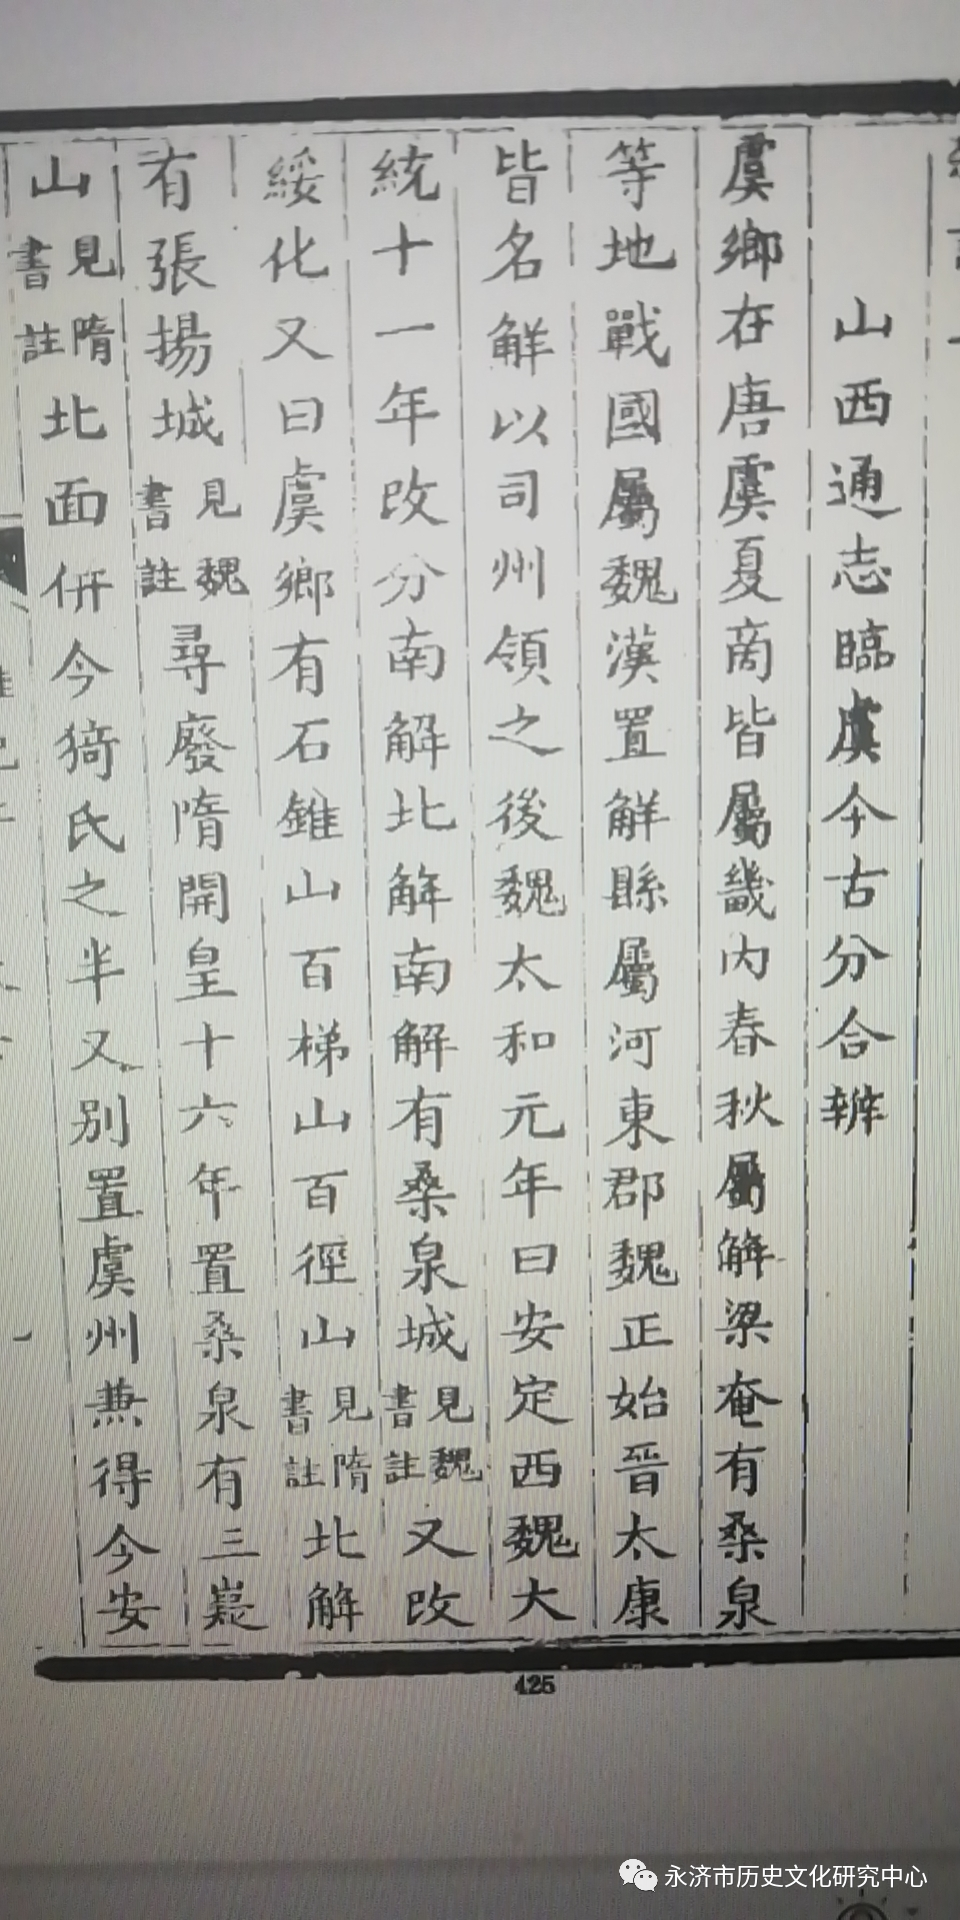 山西通志臨虞今古分合辨
虞鄉在唐虞夏商皆屬畿内春秋屬解梁奄有桑泉
等地戰國屬魏漢置解縣屬河東郡魏正始晉太康
皆名解以司州領之後魏太和元年曰安定西魏大
統十一年改分南解北解南解有桑泉城見魏書註又改
綏化又曰虞鄉有石錐山百梯山百徑山見隋書註北解
有張揚城見魏書註尋廢隋開皇十六年置桑泉有三嶷
山見隋書註北面併今猗氏之半又別置虞州兼得今安
425
永济市历史文化研究中心